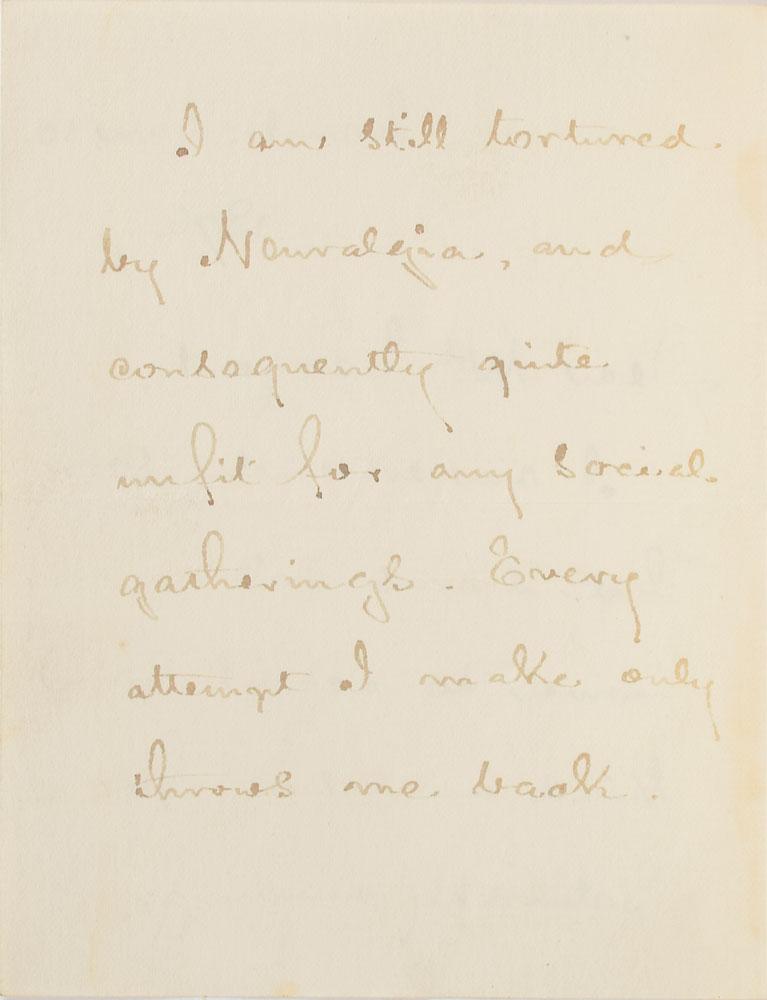 I am still tortured
by Neuralgia, and
consequently quite
unfit for any social
gatherings. Every
attempt I make only
throws me back.